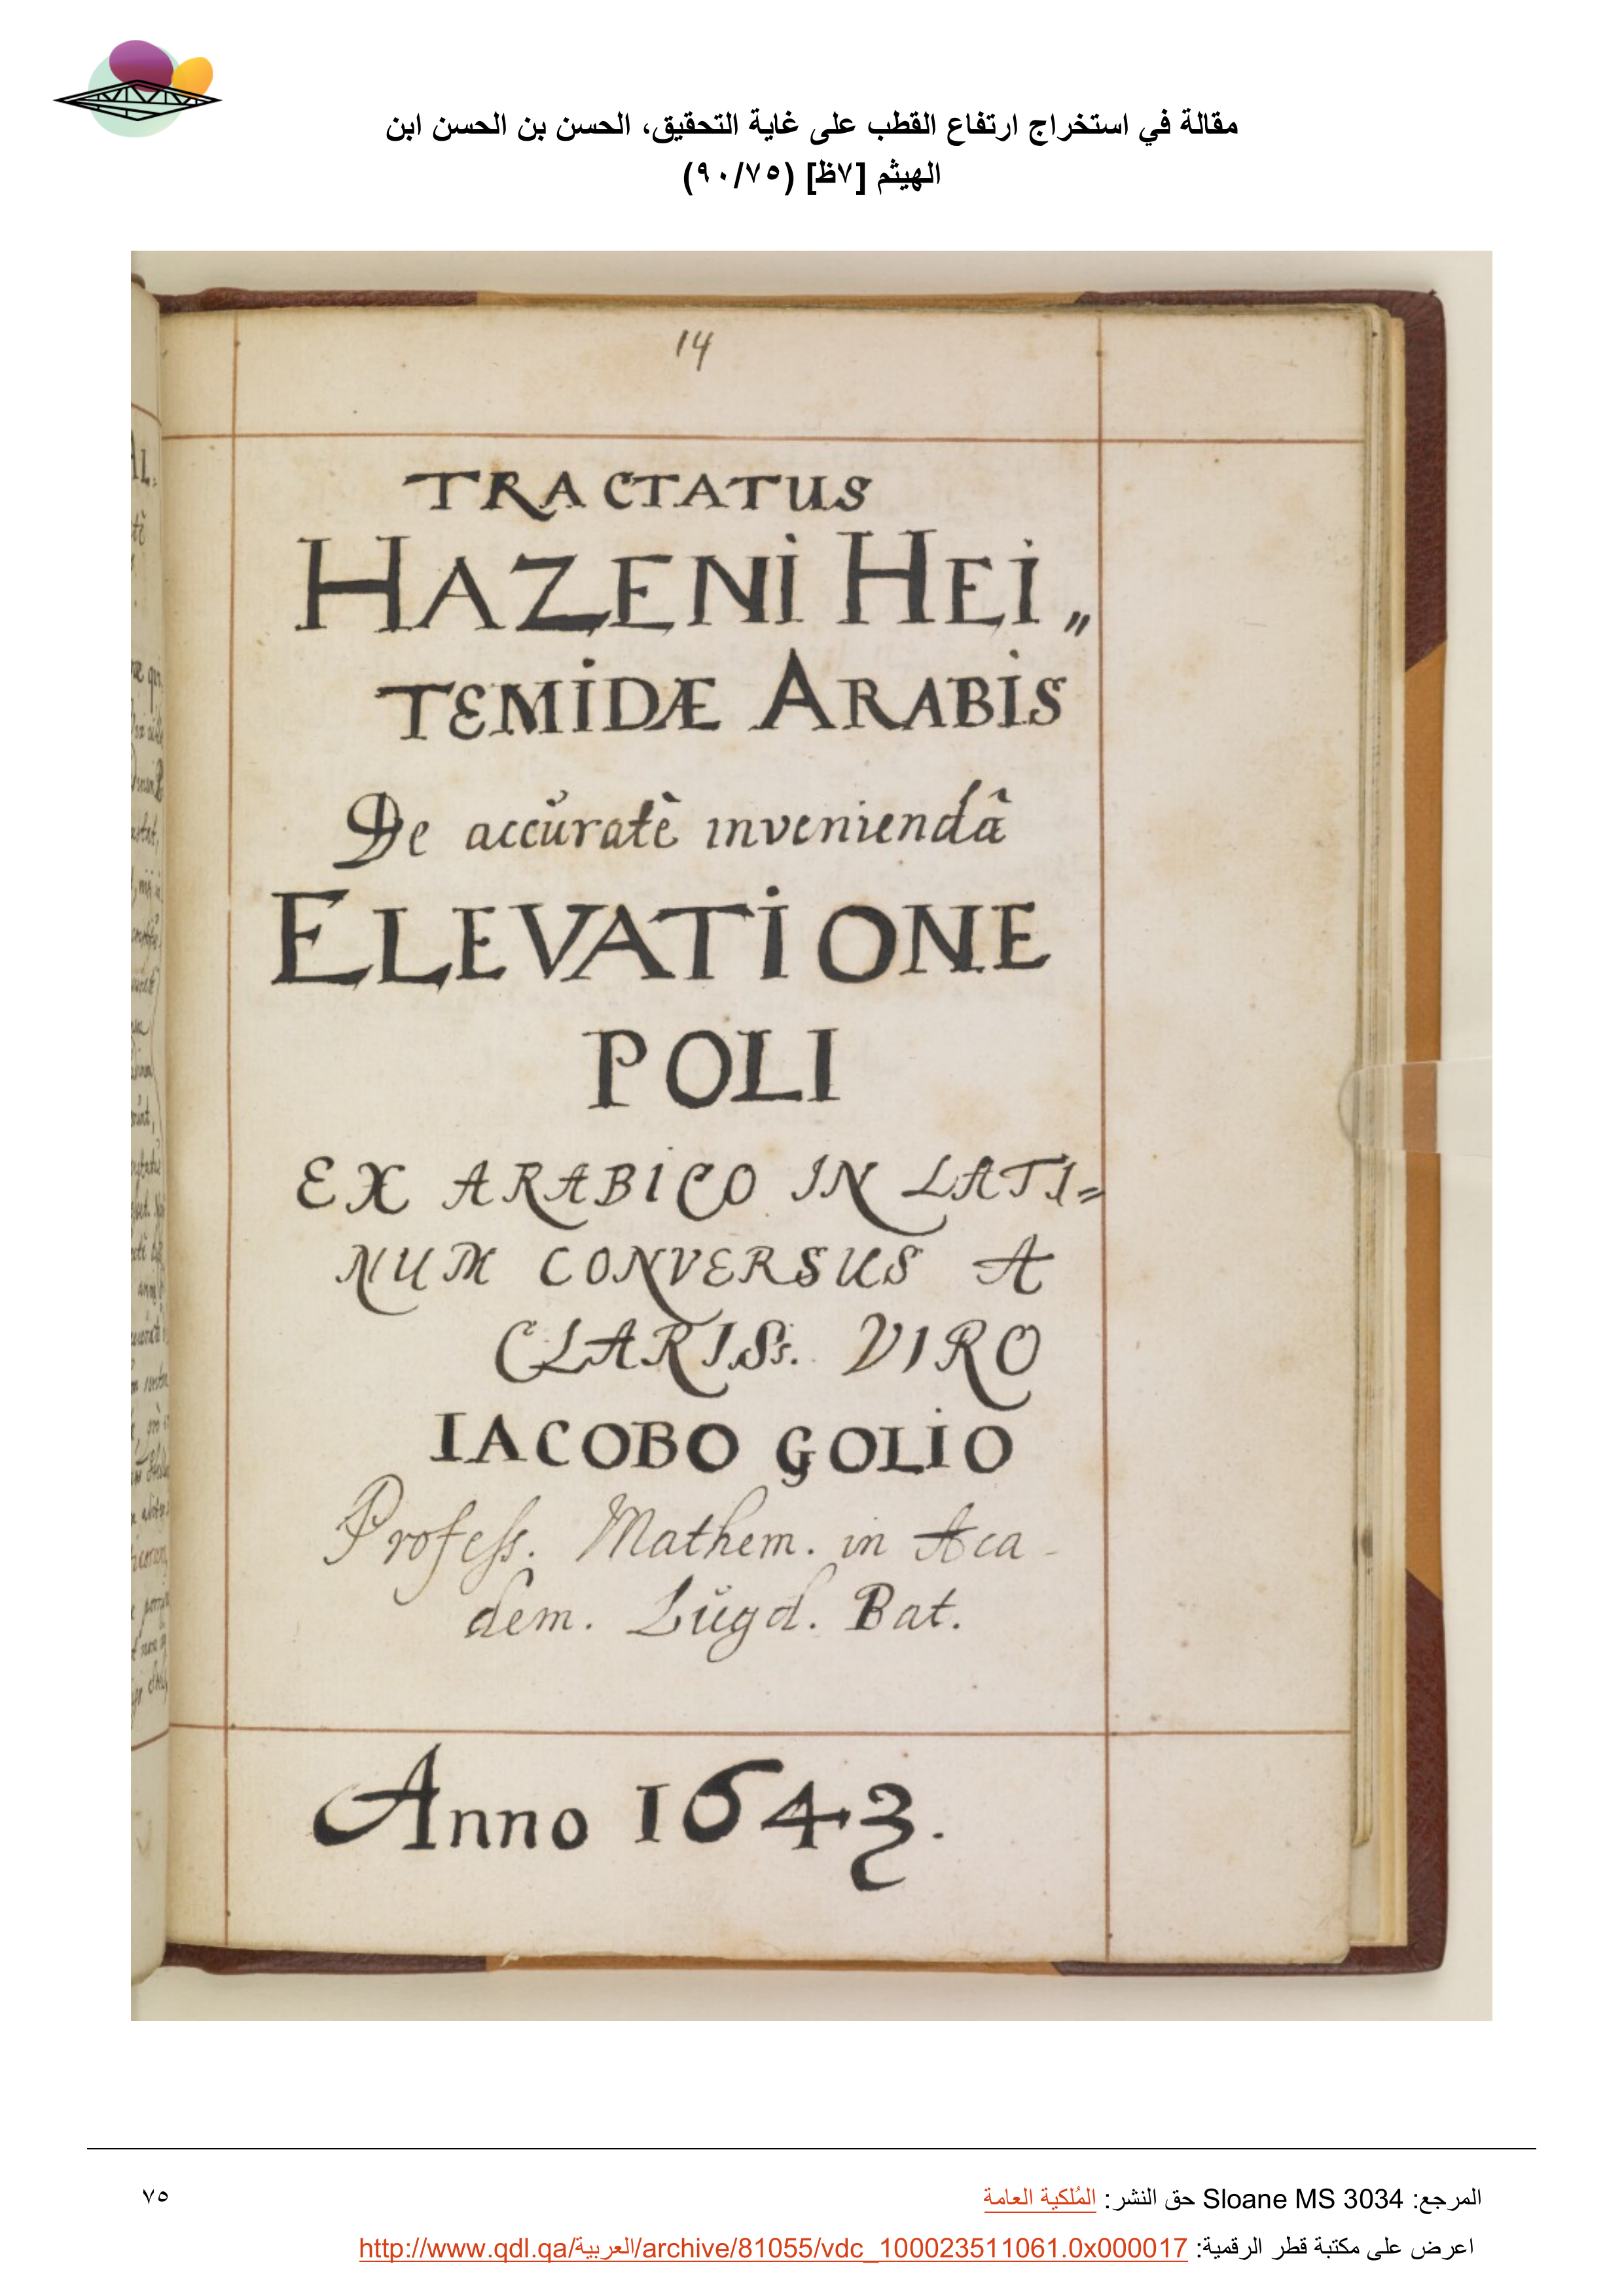 مقالة في استخراج ارتفاع القطب على غاية التحقيق، الحسن بن الحسن ابن
الهيثم [٧ظ] (٩٠/٧٥)
14
TRACTATUS
HAZENI HEI„
TEMIDÆ ARABIS
De accŭratè inveniendâ
ELEVATIONE
POLI
EX ARABICO IN LATI=
NUM CONVERSUS A
CLARISs. VIRO
IACOBO GOLIO
Profess. Mathem. in Aca-
dem. Lŭgd. Bat.
Anno 1643.
المرجع: Sloane MS 3034 حق النشر: المُلكية العامة
٧٥
اعرض على مكتبة قطر الرقمية: http://www.qdl.qa/العربية/archive/81055/vdc_100023511061.0x000017